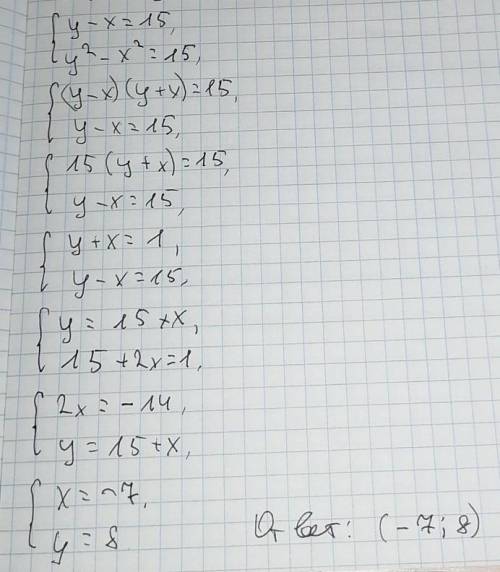 y-x=15,
y²-x²=15,
(y-x)(y+x)=15,
y-x=15,
15(y+x)=15,
y-x=15,
y+x=1,
y-x=15,
y=15+x,
15+2x=1,
2x=-14,
y=15+x,
x=-7,
y=8
Ответ: (-7; 8)